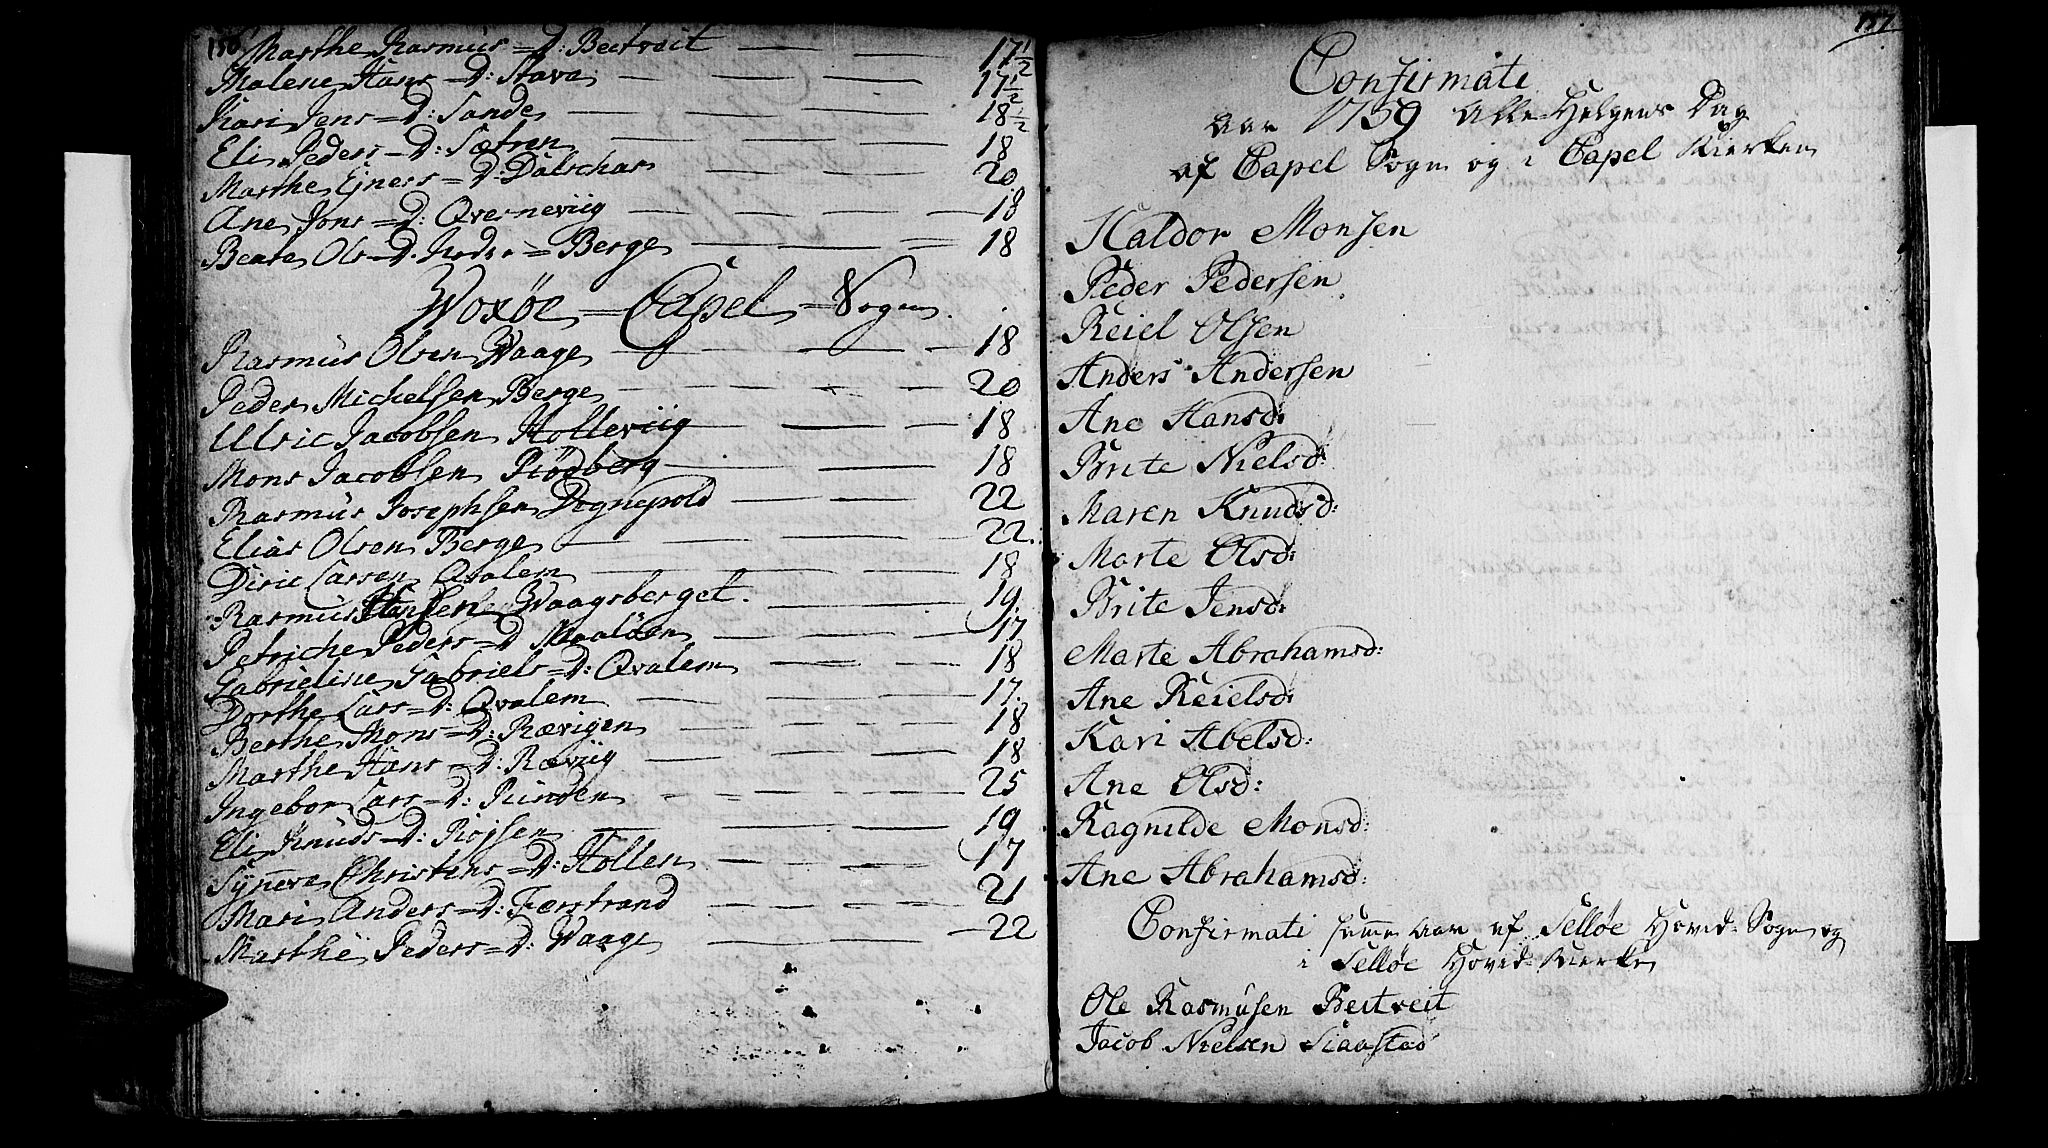 156 Marthe Rasmus=D: Beitveit — — 17 1/2
Malene Hans=D: Stava — — — 17 1/2
Kari Jens=D: Sande — — — 18 1/2
Eli Peders=D: Sætren — — — 18
Marthe Ejners=D: Dalschar — — — 20
Ane Jons=D: Qverneviig — — — 18
Beate Ols=D. Nedre=Berge — — = 18
Woxøe=Capel=Sogn.
Rasmus Olsen Waage — — — 18
Peder Michelsen Berge — — — 20
Ulric Jacobsen Holleviig — — — 18
Mons Jacobsen Rødberg — — — 18
Rasmus Josephsen Degnepold — — — 22
Elias Olsen Berge — — — 22.
Diric Larsen Qvalem — — — 18
Rasmus Hansen Waagsberget. — — — 19.
Petriche Peders=D Maaløen — — — 17
Gabrieline Gabriels=D: Qvalem — — — 18
Dorthe Lars=D: Qvalem — — — 17.
Berthe Mons=D: Rævigen — — — 18
Marthe Hans=D: Ræviig — — — 18
Ingebor Lars=D: Rinden — — — 25
Eli Knuds=D: Røjsen — — — 19
Synneva Christens=D: Hollen — — — 17
Mari Anders=D: Færstrand — — — 21
Marthe Peders=D: Waage — — — 22
157
Confirmati
Aar 1759 Alle=Helgens Dag
af Capel Sogn og i Capel Kierken
Haldor Monsen
Peder Pedersen
Reiel Olsen
Anders Andersen
Ane Hansd:
Brite Nielsd:
Maren Knudsd:
Marte Olsd:
Brite Jensd:
Marte Abrahamsd:
Ane Reielsd:
Kari Abelsd:
Ane Olsd:
Ragnilde Monsd:
Ane Abrahamsd:
Confirmati samme aar af Selløe Hoved=Sogn og
i Selløe Hoved=Kierke
Ole Rasmusen Beitveit
Jacob Nielsen